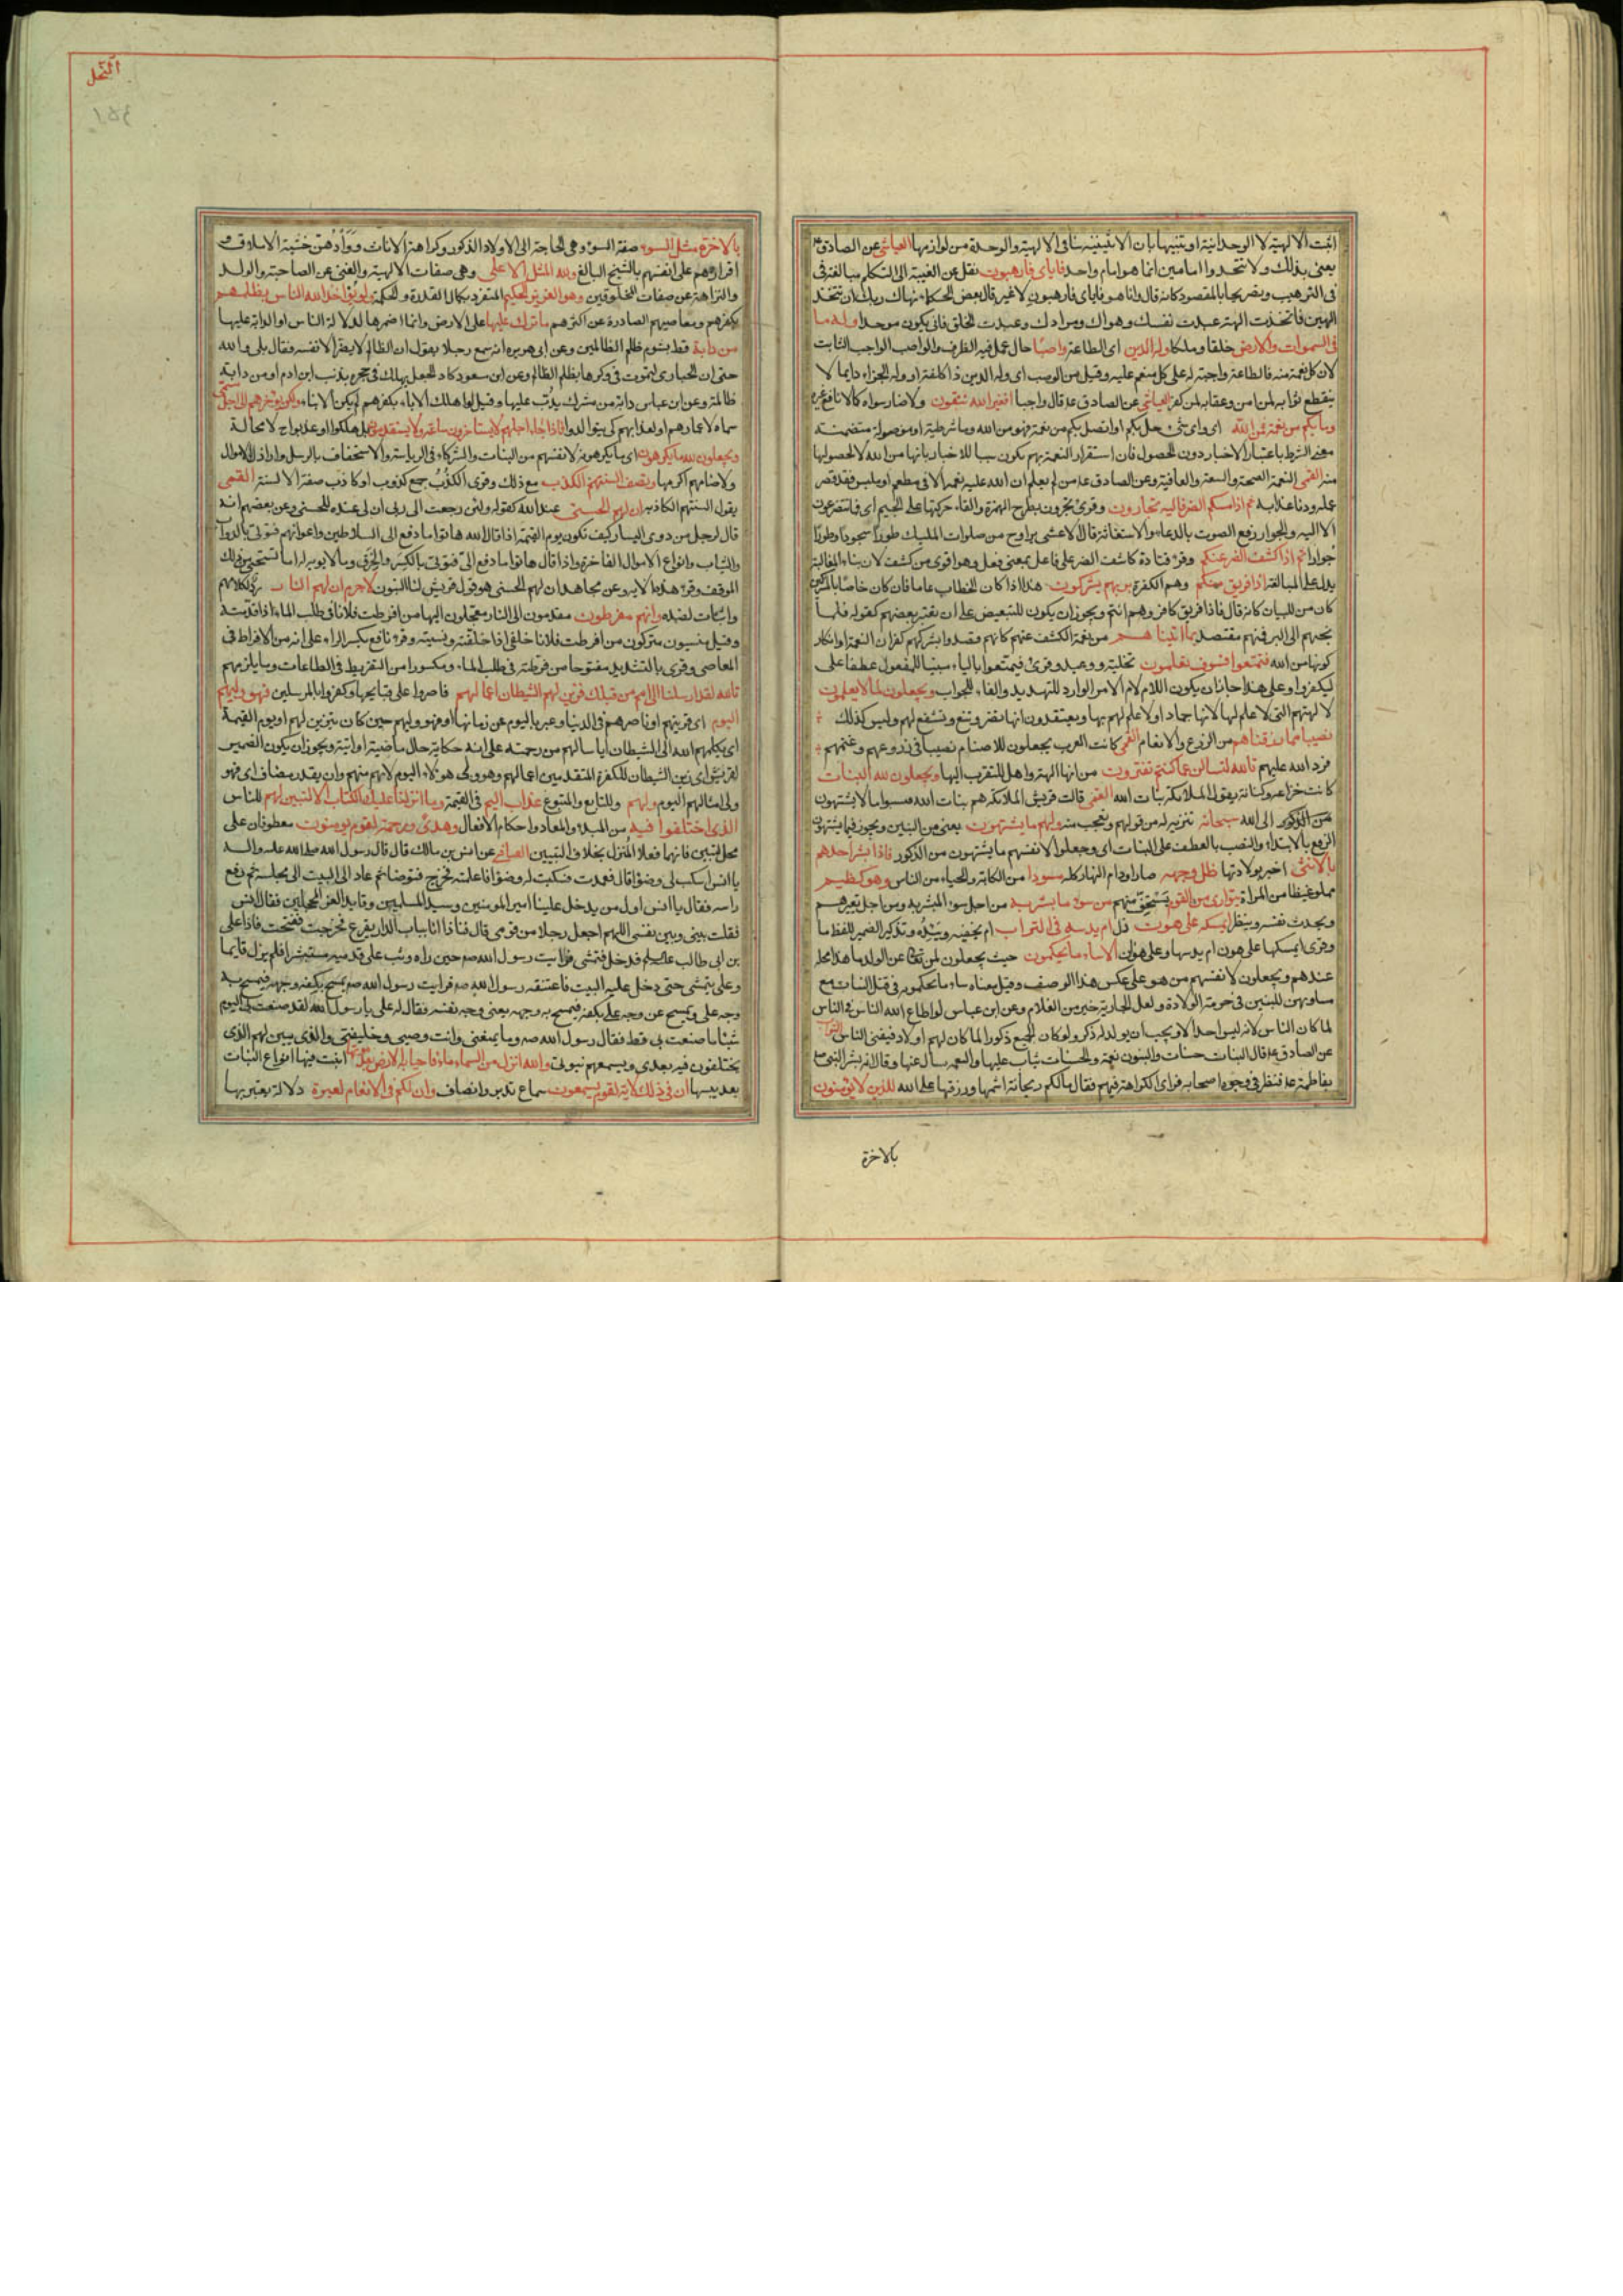 اثبت الالهية لا الوحدانية او تنبيها بان الاثنينية تنافى الالهية والوحدة من لوازمها العياشى عن الصادق ع
يعنى بذلك ولا تتخذوا امامين انما هو امام واحد فاياى فارهبون نقل عن الغيبة الى التكلم مبالغة فى
فى الترهيب وتصريحا بالمقصود كانه قال وانا هو فاياى فارهبون لا غير قال بعض الحكماء نهاك ربك ان تتخذ
الهين فاتخذت الهة عبدت نفسك وهواك ومرادك وعبدت الخلق فانى يكون موحدا وله ما
فى السموات والارض خلقا وملكا وله الدين اى الطاعة واصبا حال عمل فيه الظرف والواصب الواجب الثابت
لان كل نعمة منه فالطاعة واجبة له على كل منعم عليه وقيل من الوصب اى وله الدين ذا كلفة او وله الجزاء دايما لا
ينقطع ثوابه لمن امن وعقابه لمن كفر العياشى عن الصادق ع قال واجبا افغير الله تتقون ولا ضار سواه كما لا نافع غيره
وما بكم من نعمة فمن الله اى واى شئ حل بكم او اتصل بكم من نعمة فهو من الله وما شرطية او موصولة متضمنة
معنى الشرط باعتبار الاخبار دون الحصول فان استقرار النعمة بهم يكون سببا للاخبار بانها من الله لا لحصولها
منه القمى النعمة الصحة والسعة والعافية وعن الصادق ع من لم يعلم ان الله عليه نعمة الا فى مطعم او ملبس فقد قصر
عمله ودنا عذابه ثم اذا مسكم الضر فاليه تجأرون وقرئ تجرون بطرح الهمزة والقاء حركتها على الجيم اى فما تتضرعون
الا اليه والجوار رفع الصوت بالدعاء والاستغاثة قال الاعشى يراوح من صلوات المليك طورا سجودا وطورا
جوارا ثم اذا كشف الضر عنكم وقرء قتادة كاشف الضر على فاعل بمعنى فعل وهو اقوى من كشف لان بناء المغالبة
يدل على المبالغة اذا فريق منكم وهم الكفرة بربهم يشركون هذا اذا كان الخطاب عاما فان كان خاصا بالمشركين
كان من للبيان كانه قال فاذا فريق كافر وهم انتم ويجوز ان يكون للتبعيض على ان يعتبر بعضهم كقوله فلما
نجيهم الى البر فمنهم مقتصد بما اتيناهم من نعمة الكشف عنهم كانهم قصدوا بشركهم كفران النعمة او انكار
كونها من الله فتمتعوا فسوف تعلمون تخلية ووعيد وقرئ فيمتعوا بالياء مبنيا للمفعول عطفا على
ليكفروا وعلى هذا جاز ان يكون اللام لام الامر الوارد للتهديد والفاء للجواب ويجعلون لما لا يعلمون
لا لهتهم التى لا علم لها لانها جماد او لا علم لهم بها ويعتقدون انها تضر وتنفع وتشفع لهم وليس كذلك
نصيبا مما رزقناهم من الزرع والانعام القمى كانت العرب يجعلون للاصنام نصيبا فى زرعهم وغنمهم
فرد الله عليهم تالله لتسالن عما كنتم تفترون من انها الهة واهل للتقرب اليها ويجعلون لله البنات
كانت خزاعة وكنانة يقول الملائكة بنات الله القمى قالت قريش الملائكة هم بنات الله فنسبوا ما لا يشتهون
من الذكور الى الله سبحانه تنزيه له من قولهم وتعجب منه ولهم ما يشتهون يعنى من البنين ويجوز فيما يشتهون
الرفع بالابتداء والنصب بالعطف على البنات اى وجعلوا لانفسهم ما يشتهون من الذكور فاذا بشر احدهم
بالانثى اخبر بولادتها ظل وجهه صار او دام النهار كله مسودا من الكابة والحياء من الناس وهو كظيم
مملو غيظا من المراة يتوارى من القوم يستخفى منهم من سوء ما بشر به من اجل سوء المبشر به ومن اجل تعييرهم
ويحدث نفسه وينظر ايمسكه على هون ذل ام يدسه فى التراب ام يخفيه ويئده وتذكير الضمير للفظ ما
وقرئ ايمسكها على هون ام يدسها وعلى هوان الا ساء ما يحكمون حيث يجعلون لمن تعالى عن الولد ما هذا محله
عندهم ويجعلون لانفسهم من هو على عكس هذا الوصف وقيل معناه ساء ما يحكمون فى قتل البنات مع
مساوتهن للبنين فى حرمة الولادة ولعل الجارية خير من الغلام وعن ابن عباس لو اطاع الله الناس فى الناس
لما كان الناس لانه ليس احد الا ويحب ان يولد له ذكر ولو كان الجميع ذكورا لما كان لهم اولاد فيفنى الناس
عن الصادق ع قال البنات حسنات والبنون نعمة والحسنات يثاب عليها والنعمة يسأل عنها وقال انه بشر النبى ص
بفاطمة ع فنظر فى وجوه اصحابه فراى الكراهة فيهم فقال ما لكم ريحانة اشمها ورزقها على الله للذين لا يؤمنون
بالاخرة
النحل
١٥٤
بالاخرة مثل السوء صفة السوء وهى الحاجة الى الاولاد الذكور وكراهة الاناث ووأدهن خشية الاملاق و
اقرارهم على انفسهم بالشح البالغ ولله المثل الاعلى وهى صفات الالهية والغنى عن الصاحبة والولد
والنزاهة عن صفات المخلوقين وهو العزيز الحكيم المتفرد بكمال القدرة والحكمة ولو يؤاخذ الله الناس بظلمهم
بكفرهم ومعاصيهم الصادرة عن اكثرهم ما ترك عليها على الارض وانما اضمرها لدلالة الناس او الدابة عليها
من دابة قط بشوم ظلم الظالمين وعن ابى هريره انه سمع رجلا يقول ان الظالم لا يضر الا نفسه فقال بلى والله
حتى ان الحبارى لتموت فى وكرها بظلم الظالم وعن ابن مسعود كاد الجعل يهلك فى جحره بذنب ابن ادم او من دابة
ظالمة وعن ابن عباس دابة من مشرك يدب عليها وقيل لو اهلك الاباء بكفرهم لم يكن الابناء ولكن يؤخرهم الى اجل مسمى
سماه لاعمارهم او لعذابهم كى يتوالدوا فاذا جاء اجلهم لا يستأخرون ساعة ولا يستقدمون بل هلكوا او عذبوا ح لا محالة
ويجعلون لله ما يكرهون اى ما يكرهونه لانفسهم من البنات والشركاء فى الرياسة والاستخفاف بالرسل واراذل الاموال
ولاصنامهم اكرمها وتصف السنتهم الكذب مع ذلك وقرئ الكذب جمع كذوب او كاذب صفة الالسنة القمى
يقول السنتهم الكاذبة ان لهم الحسنى عند الله كقوله ولئن رجعت الى ربى ان لى عنده للحسنى وعن بعضهم انه
قال لرجل من ذوى اليسار كيف تكون يوم القيمة اذا قال الله هاتوا ما دفع الى السلاطين واعوانهم فتؤتى بالدواب
والثياب وانواع الاموال الفاخرة واذا قال هاتوا ما دفع الى فتؤتى بالكسر والخرق وما لا يوبه له اما تستحيى من ذلك
الموقف وقرء هذه الاية وعن مجاهد ان لهم الحسنى هو قول قريش لنا البنون لا جرم ان لهم النار رد لكلامهم
واثبات لضده وانهم مفرطون مقدمون الى النار معجلون اليها من افرطت فلانا فى طلب الماء اذا قدمته
وقيل منسيون متركون من افرطت فلانا خلفى اذا خلفته ونسيته وقرء نافع بكسر الراء على انه من الافراط فى
المعاصى وقرئ بالتشديد مفتوحا من فرطته فى طلب الماء ومكسورا من التفريط فى الطاعات وما يلزمهم
تالله لقد ارسلنا الى امم من قبلك فزين لهم الشيطان اعمالهم فاصروا على قبايحها وكفروا بالمرسلين فهو وليهم
اليوم اى قرينهم او ناصرهم فى الدنيا وعبر باليوم عن زمانها او فهو وليهم حين كان يزين لهم او يوم القيمة
اى يكلهم الله الى الشيطان اياسا لهم من رحمته على انه حكاية حال ماضية او اتية ويجوز ان يكون الضمير
لقريش اى زين الشيطان للكفرة المتقدمين اعمالهم وهو ولى هؤلاء اليوم لانهم منهم وان يقدر مضاف اى فهو
ولى امثالهم اليوم ولهم وللتابع والمتبوع عذاب اليم فى القيمة وما انزلنا عليك الكتاب الا لتبين لهم للناس
الذى اختلفوا فيه من المبدء والمعاد واحكام الافعال وهدى ورحمة لقوم يؤمنون معطوفان على
محل لتبين فانهما فعلا المنزل بخلاف التبيين العياشى عن انس بن مالك قال قال رسول الله صلى الله عليه واله
يا انس اسكب لى وضوءا قال فعمدت فسكبت له وضوءا فاعلمته فخرج فتوضا ثم عاد الى البيت الى مجلسه ثم رفع
راسه فقال يا انس اول من يدخل علينا امير المومنين وسيد المسلمين وقايد الغر المحجلين فقال انس
فقلت بينى وبين نفسى اللهم اجعل رجلا من قومى قال فاذا انا بباب الدار يقرع فخرجت ففتحت فاذا على
بن ابى طالب عليه السلام فدخل فتمشى فرايت رسول الله ص حين راه وثب على قدميه مستبشرا فلم يزل قايما
وعلى يتمشى حتى دخل عليه البيت فاعتنقه رسول الله ص فرايت رسول الله ص يمسح بكفه وجهه فيمسح به
وجه على ويمسح عن وجه على بكفه فيمسح به وجهه يعنى وجه نفسه فقال له على يا رسول الله لقد صنعت بى اليوم
شيئا ما صنعت بى قط فقال رسول الله ص وما يمنعنى وانت وصيى وخليفتى والذى يبين لهم الذى
يختلفون فيه بعدى ويسمعهم نبوتى والله انزل من السماء ماء فاحيا به الارض بعد موتها انبت فيها انواع النبات
بعد يبسها ان فى ذلك لاية لقوم يسمعون سماع تدبر وانصاف وان لكم فى الانعام لعبرة دلالة يعتبر بها